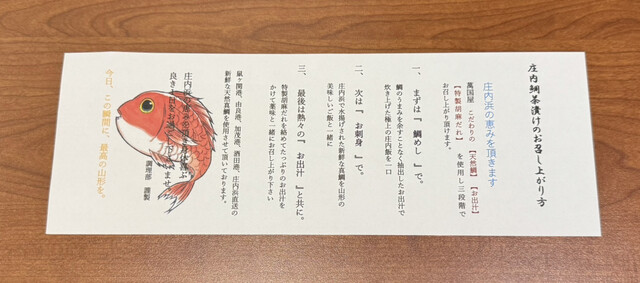 庄内鯛茶漬けのお召し上がり方
庄内浜の恵みを頂きます
萬国屋 こだわりの【天然鯛】【お出汁】
【特製胡麻だれ】を使用し三段階で
お召し上がり頂けます。
一、まずは『鯛めし』で。
鯛のうまみを余すことなく抽出したお出汁で
炊き上げた極上の庄内飯を一口
二、次は『お刺身』で。
庄内浜で水揚げされた新鮮な真鯛を山形の
美味しいご飯と一緒に
三、最後は熱々の『お出汁』と共に。
特製胡麻だれを絡めてたっぷりのお出汁を
かけて薬味と一緒にお召し上がり下さい
鼠ヶ関港、由良港、加茂港、酒田港、庄内浜直送の
新鮮な天然真鯛を使用させて頂いております。
庄内浜の恵みを頂き
良き一日をお過ごし
調理部 謹製
今日、この瞬間に、最高の山形を。